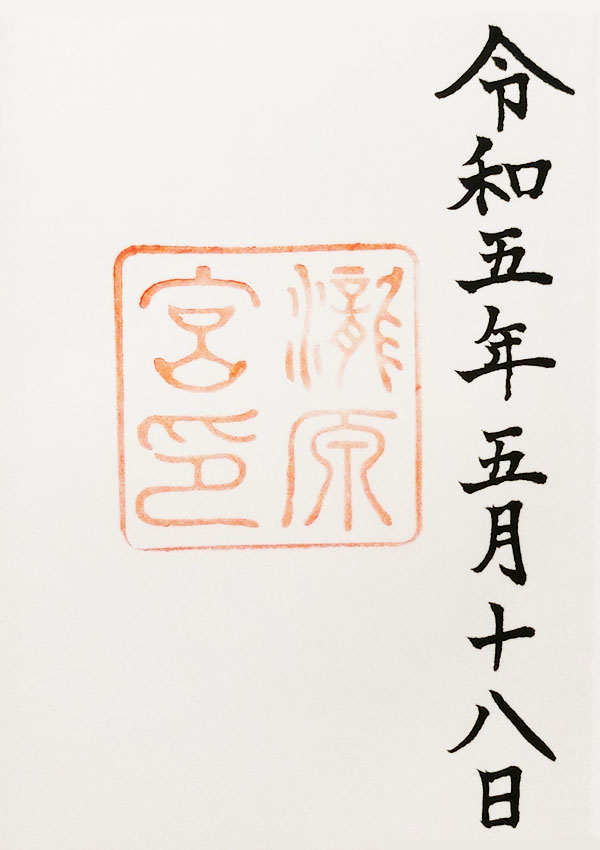 令和五年五月十八日
瀧原
宮印